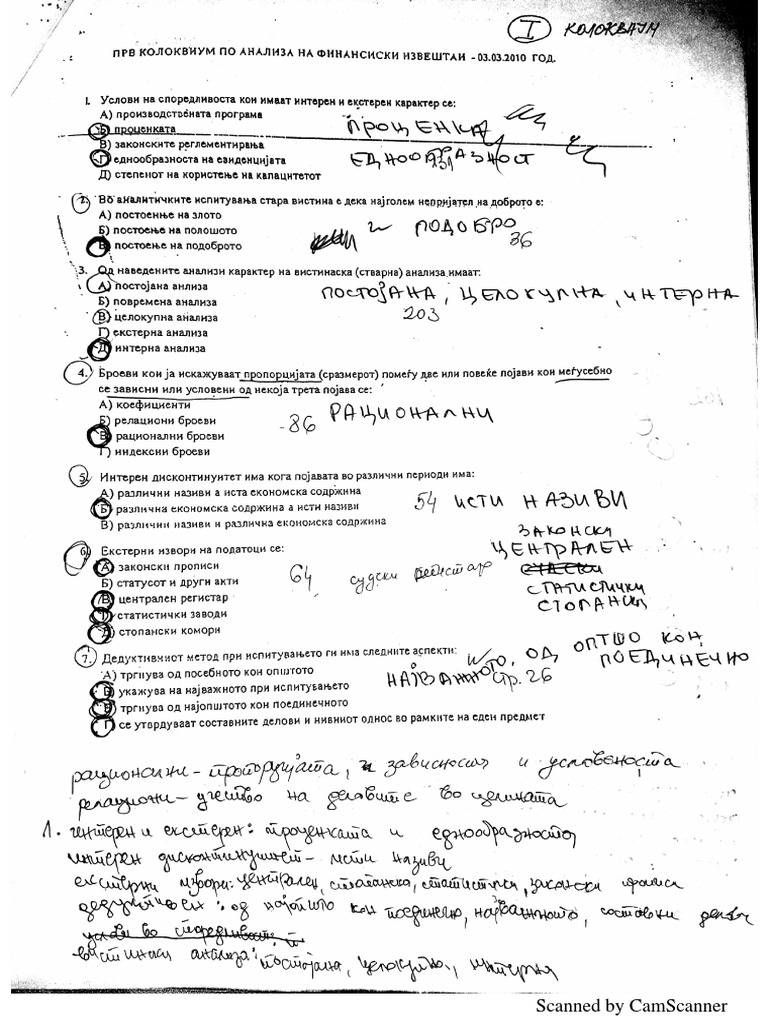 I КОЛОКВИУМ
ПРВ КОЛОКВИУМ ПО АНАЛИЗА НА ФИНАНСИСКИ ИЗВЕШТАИ - 03.03.2010 ГОД.
1. Услови на споредливоста кои имаат интерен и екстерен карактер се:
А) производствената програма
Б) проценката ПРОЦЕНКА
В) законските регламентирања
Г) еднообразноста на евиденцијата ЕДНООБРАЗНОСТ
Д) степенот на користење на капацитетот
2. Во аналитичките испитувања стара вистина е дека најголем непријател на доброто е:
А) постоење на злото
Б) постоење на полошото
В) постоење на подоброто ПОДОБРО 36
3. Од наведените анализи карактер на вистинаска (стварна) анализа имаат:
А) постојана анлиза ПОСТОЈАНА, ЦЕЛОКУПНА, ИНТЕРНА
Б) повремена анализа
В) целокупна анализа 203
Г) екстерна анализа
Д) интерна анализа
4. Броеви кои ја искажуваат пропорцијата (сразмерот) помеѓу две или повеќе појави кои меѓусебно
се зависни или условени од некоја трета појава се:
А) коефициенти
Б) релациони броеви -86 РАЦИОНАЛНИ
В) рационални броеви
Г) индексни броеви
5. Интерен дисконтинуитет има кога појавата во различни периоди има:
А) различни називи а иста економска содржина
Б) различна економска содржина а исти називи 54 ИСТИ НАЗИВИ
В) различни називи и различна економска содржина
6. Екстерни извори на податоци се: ЗАКОНСКИ
А) законски прописи ЦЕНТРАЛЕН
Б) статусот и други акти 64 судски регистар
В) централен регистар СТАТИСТИЧКИ
Г) статистички заводи СТОПАНСКИ
Д) стопански комори
7. Дедуктивниот метод при испитувањето ги има следните аспекти:
А) тргнува од посебното кон општото НАЈВАЖНОТО, ОД ОПТШО КОН ПОЕДИНЕЧНО
Б) укажува на најважното при испитувањето стр. 26
В) тргнува од најопштото кон поединечното
Г) се утврдуваат составните делови и нивниот однос во рамките на еден предмет
рационални - пропорцијата, зависноста и условеноста
релациони - учество на деловите во целината
1. интерен и екстерен: проценката и еднообразноста
интерен дисконтинуитет - исти називи
екстерни извори: централен, стопанска, статистички, законски
од најопшто кон поединечно, најважното, составни делови
анализа: постојана, целокупна, интерна
Scanned by CamScanner